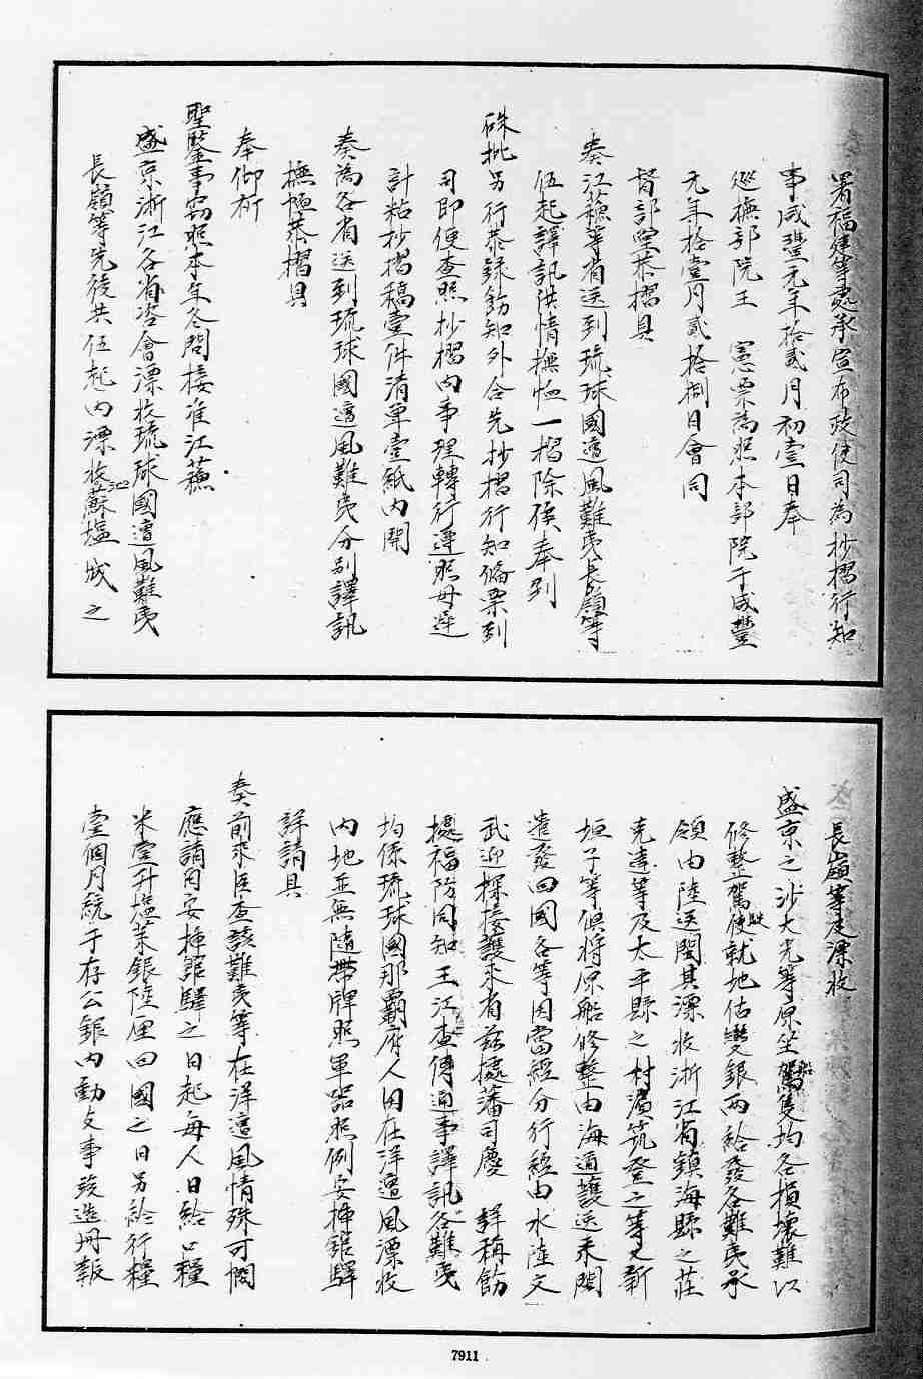 署福建等處承宣布政使司為抄摺行知
事咸豐元年拾貳月初壹日奉
巡撫部院王　憲票為照本部院于咸豐
元年拾壹月貳拾捌日會同
督部堂恭摺具
奏江蘇等省送到琉球國遭風難夷長嶺等
伍起譯訊供情撫恤一摺除俟奉到
硃批另行恭錄飭知外合先抄摺行知備票到
司即便查照抄摺內事理轉行遵照毋違
計粘抄摺稿壹件清單壹紙內開
奏為各省送到琉球國遭風難夷分別譯訊
撫恤恭摺具
奏仰祈
聖鑒事竊照本年冬間接准江蘇
盛京浙江各省咨會漂收琉球國遭風難夷
長嶺等先後共伍起內漂收蘇塩城之
長嶺等及漂收
盛京之沙大光等原坐駕船隻均各損壞難以
修整駕駛便就地估變銀兩給發各難夷承
領由陸送閩其漂收浙江省鎮海縣之莊
克達等及太平縣之村濱筑登之等又新
垣子等俱將原船修整由海道護送來閩
遣發回國各等因當經分行經由水陸文
武迎探接護來省茲據藩司慶　詳稱飭
據福防同知王江查傳通事譯訊各難夷
均係琉球國那霸府人因在洋遭風漂收
內地並無隨帶牌照軍器照例安插館驛
詳請具
奏前來臣查該難夷等在洋遭風情殊可憫
應請自安插館驛之日起每人日給口糧
米壹升塩菜銀陸厘回國之日另給行糧
壹個月統于存公銀內動支事竣造冊報
7911